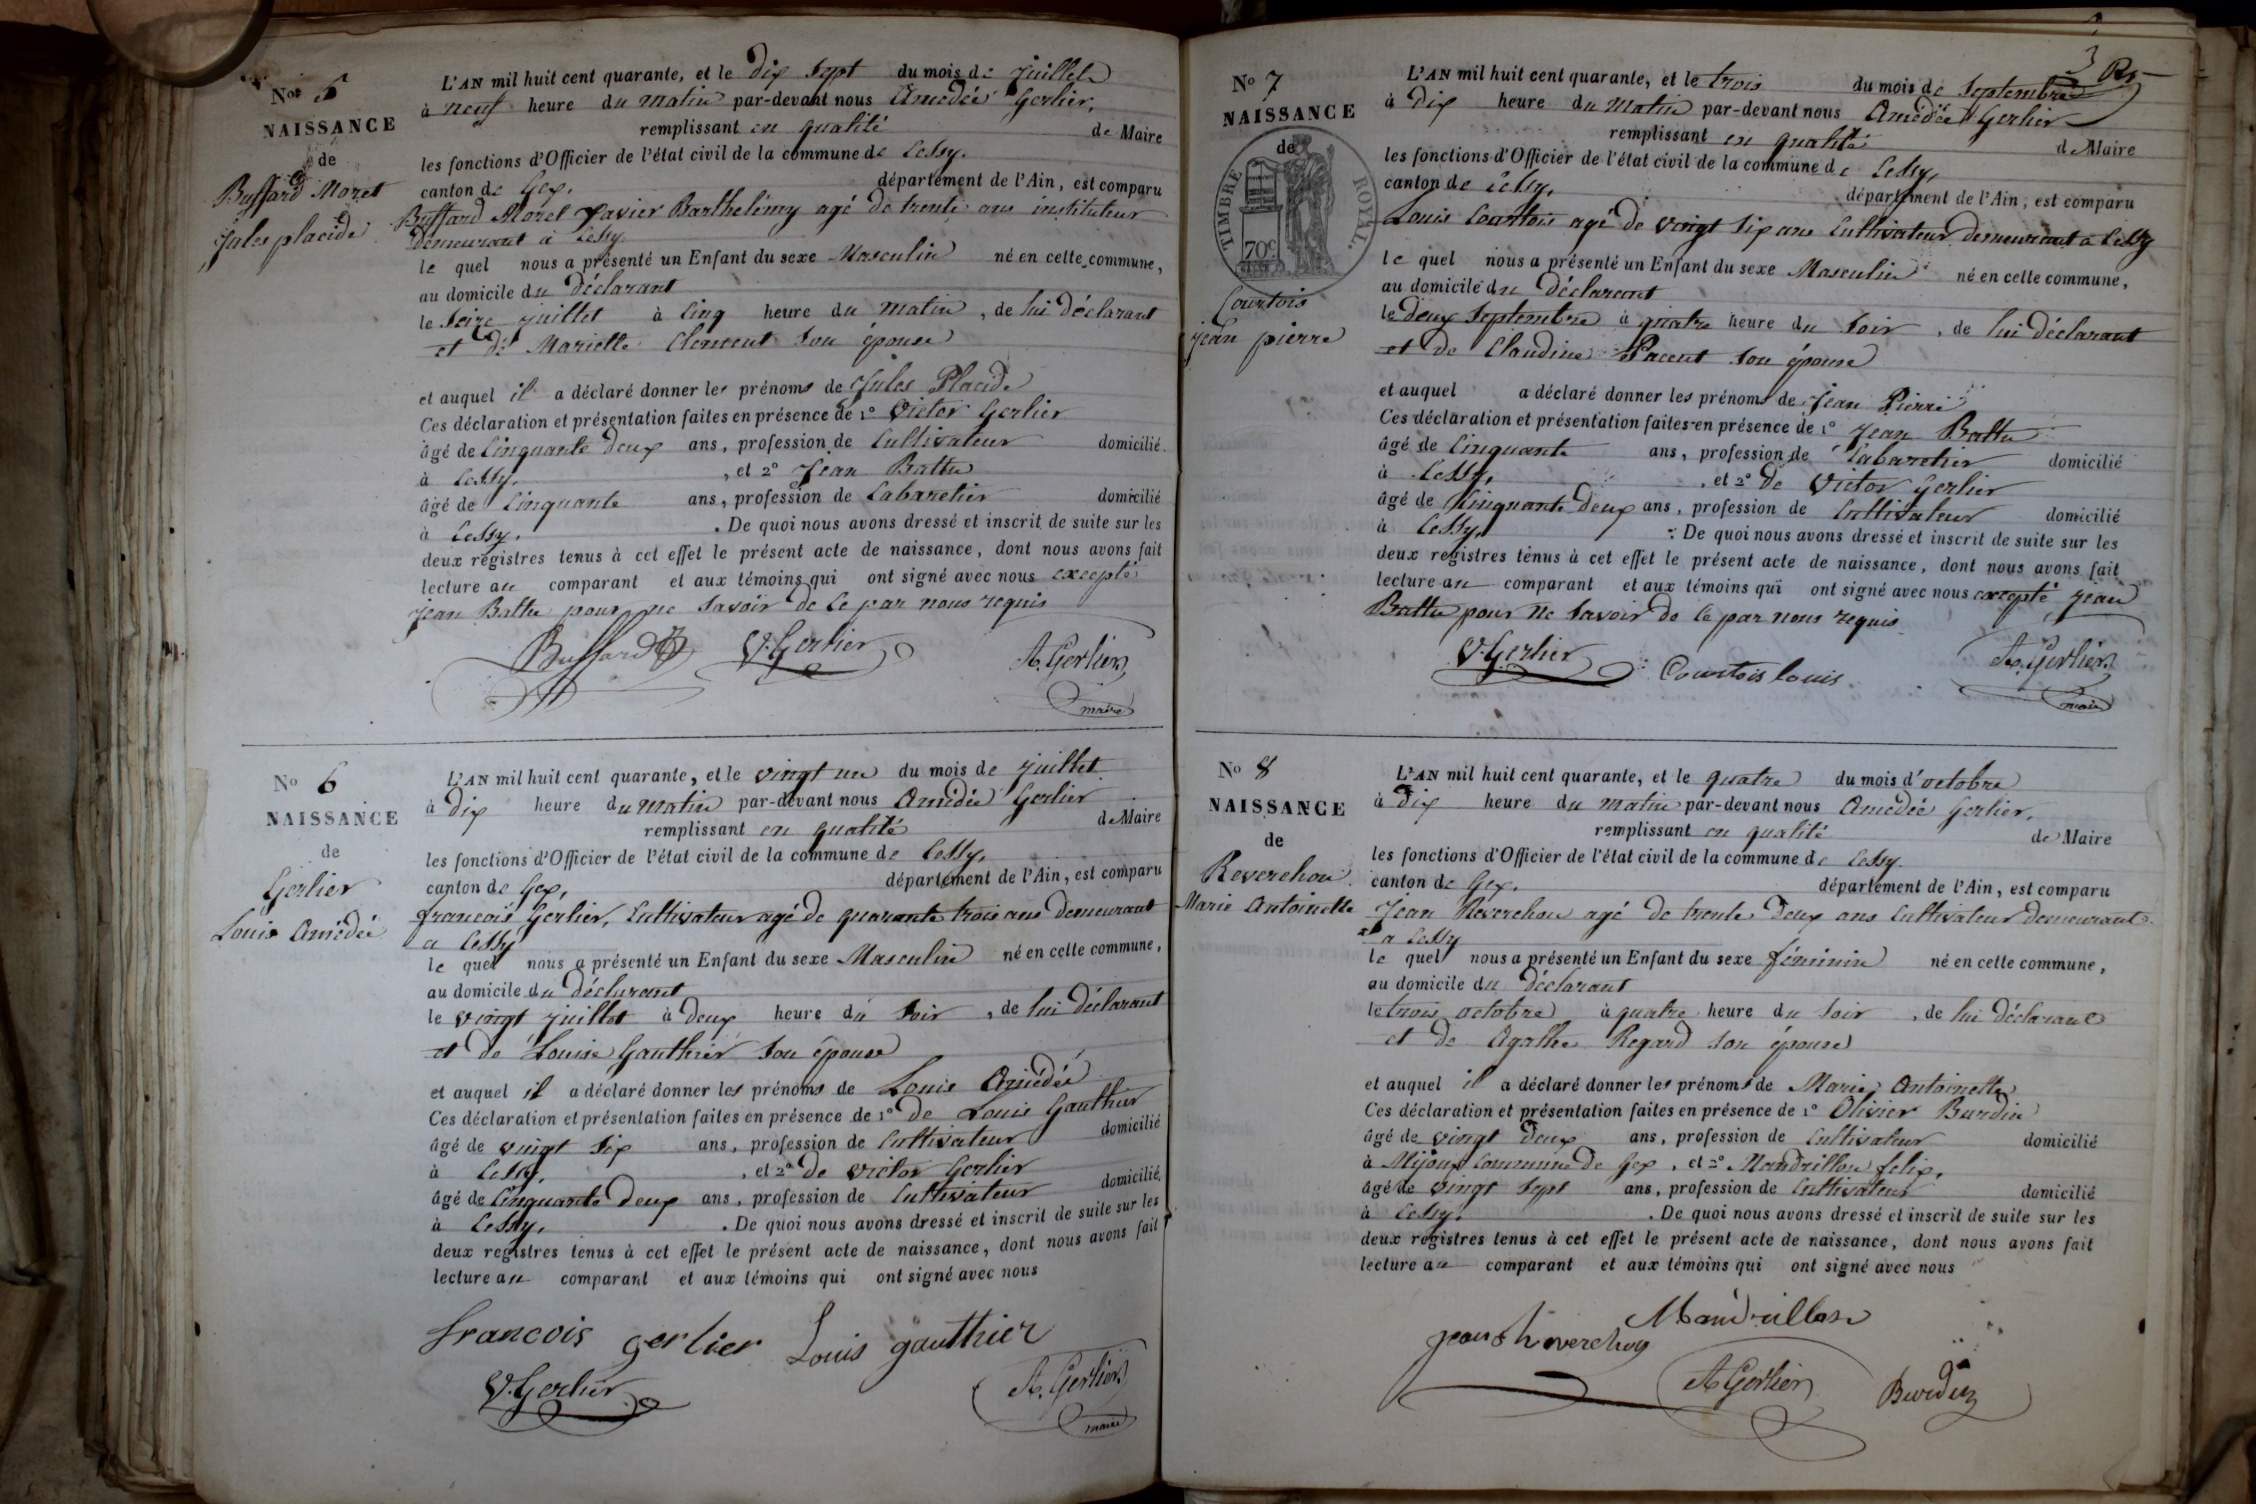 No 5
NAISSANCE
de
Buffard Morel
Jules placide
L'AN mil huit cent quarante, et le dix sept du mois de juillet
à neuf heure du matin par-devant nous Amédée Gerlier,
remplissant en qualité de Maire
les fonctions d'Officier de l'état civil de la commune de Lessy.
canton de Gex, département de l'Ain, est comparu
Buffard Morel Xavier Barthelémy agé de trente ans instituteur
demeurant à Lessy
le quel nous a présenté un Enfant du sexe Masculin né en cette commune,
au domicile du déclarant
le seize juillet à cinq heure du matin, de lui déclarant
et de Mariette Clement son épouse
et auquel il a déclaré donner les prénoms de Jules Placide
Ces déclaration et présentation faites en présence de 1º Victor Gerlier
âgé de cinquante deux ans, profession de Cultivateur domicilié
à Lessy. , et 2º Jean Battu
âgé de cinquante ans, profession de Cabaretier domicilié
à Lessy. . De quoi nous avons dressé et inscrit de suite sur les
deux registres tenus à cet effet le présent acte de naissance, dont nous avons fait
lecture au comparant et aux témoins qui ont signé avec nous excepté
jean Battu pour ne savoir de ce par nous requis
Buffard V. Gerlier A. Gerlier
maire
No 6
NAISSANCE
de
Gerlier
Louis Amédée
L'AN mil huit cent quarante, et le vingt un du mois de juillet
à dix heure du matin par-devant nous Amédée Gerlier
remplissant en qualité de Maire
les fonctions d'Officier de l'état civil de la commune de Lessy.
canton de Gex, département de l'Ain, est comparu
francois Gerlier, Cultivateur agé de quarante trois ans demeurant
a Lessy
le quel nous a présenté un Enfant du sexe Masculin né en cette commune,
au domicile du déclarant
le vingt juillet à deux heure du soir, de lui déclarant
et de Louise Gauthier son épouse
et auquel il a déclaré donner les prénoms de Louis Amédée
Ces déclaration et présentation faites en présence de 1º de Louis Gauthier
âgé de vingt six ans, profession de Cultivateur domicilié
à Lessy, , et 2º de Victor Gerlier
âgé de cinquante deux ans, profession de Cultivateur domicilié
à Lessy, . De quoi nous avons dressé et inscrit de suite sur les
deux registres tenus à cet effet le présent acte de naissance, dont nous avons fait
lecture au comparant et aux témoins qui ont signé avec nous
francois gerlier Louis gauthier
V. Gerlier A. Gerlier
maire
3
No 7
NAISSANCE
de
TIMBRE ROYAL.
70 c
Courtois
jean pierre
L'AN mil huit cent quarante, et le trois du mois de Septembre
à dix heure du matin par-devant nous Amédée Gerlier
remplissant en qualité de Maire
les fonctions d'Officier de l'état civil de la commune de Lessy,
canton de Lessy, département de l'Ain, est comparu
Louis Courtois agé de vingt six ans Cultivateur demeurant a Lessy
le quel nous a présenté un Enfant du sexe Masculin né en cette commune,
au domicile du déclarant
le deux Septembre à quatre heure du soir, de lui déclarant
et de Claudine Pacent son épouse
et auquel a déclaré donner les prénoms de Jean Pierre
Ces déclaration et présentation faites en présence de 1º Jean Battu
âgé de cinquante ans, profession de Cabaretier domicilié
à Lessy, , et 2º de Victor Gerlier
âgé de cinquante deux ans, profession de Cultivateur domicilié
à Lessy, . De quoi nous avons dressé et inscrit de suite sur les
deux registres tenus à cet effet le présent acte de naissance, dont nous avons fait
lecture au comparant et aux témoins qui ont signé avec nous excepté jean
Battu pour ne savoir de ce par nous requis
V. Gerlier Courtois louis A. Gerlier
maire
No 8
NAISSANCE
de
Reverchon
Marie Antoinette
L'AN mil huit cent quarante, et le quatre du mois d'octobre
à dix heure du matin par-devant nous Amédée Gerlier,
remplissant en qualité de Maire
les fonctions d'Officier de l'état civil de la commune de Lessy.
canton de Gex. département de l'Ain, est comparu
Jean Reverchon agé de trente deux ans Cultivateur demeurant
a Lessy
le quel nous a présenté un Enfant du sexe féminin né en cette commune,
au domicile du déclarant
le trois octobre à quatre heure du soir, de lui déclarant
et de Agathe Regard son épouse
et auquel il a déclaré donner les prénoms de Marie Antoinette
Ces déclaration et présentation faites en présence de 1º Olivier Burdin
âgé de vingt deux ans, profession de Cultivateur domicilié
à Mijoux commune de Gex, et 2º Mandrillon felix,
âgé de vingt sept ans, profession de Cultivateur domicilié
à Lessy. . De quoi nous avons dressé et inscrit de suite sur les
deux registres tenus à cet effet le présent acte de naissance, dont nous avons fait
lecture au comparant et aux témoins qui ont signé avec nous
Mandrillon
jean Reverchon
A Gerlier Burdin